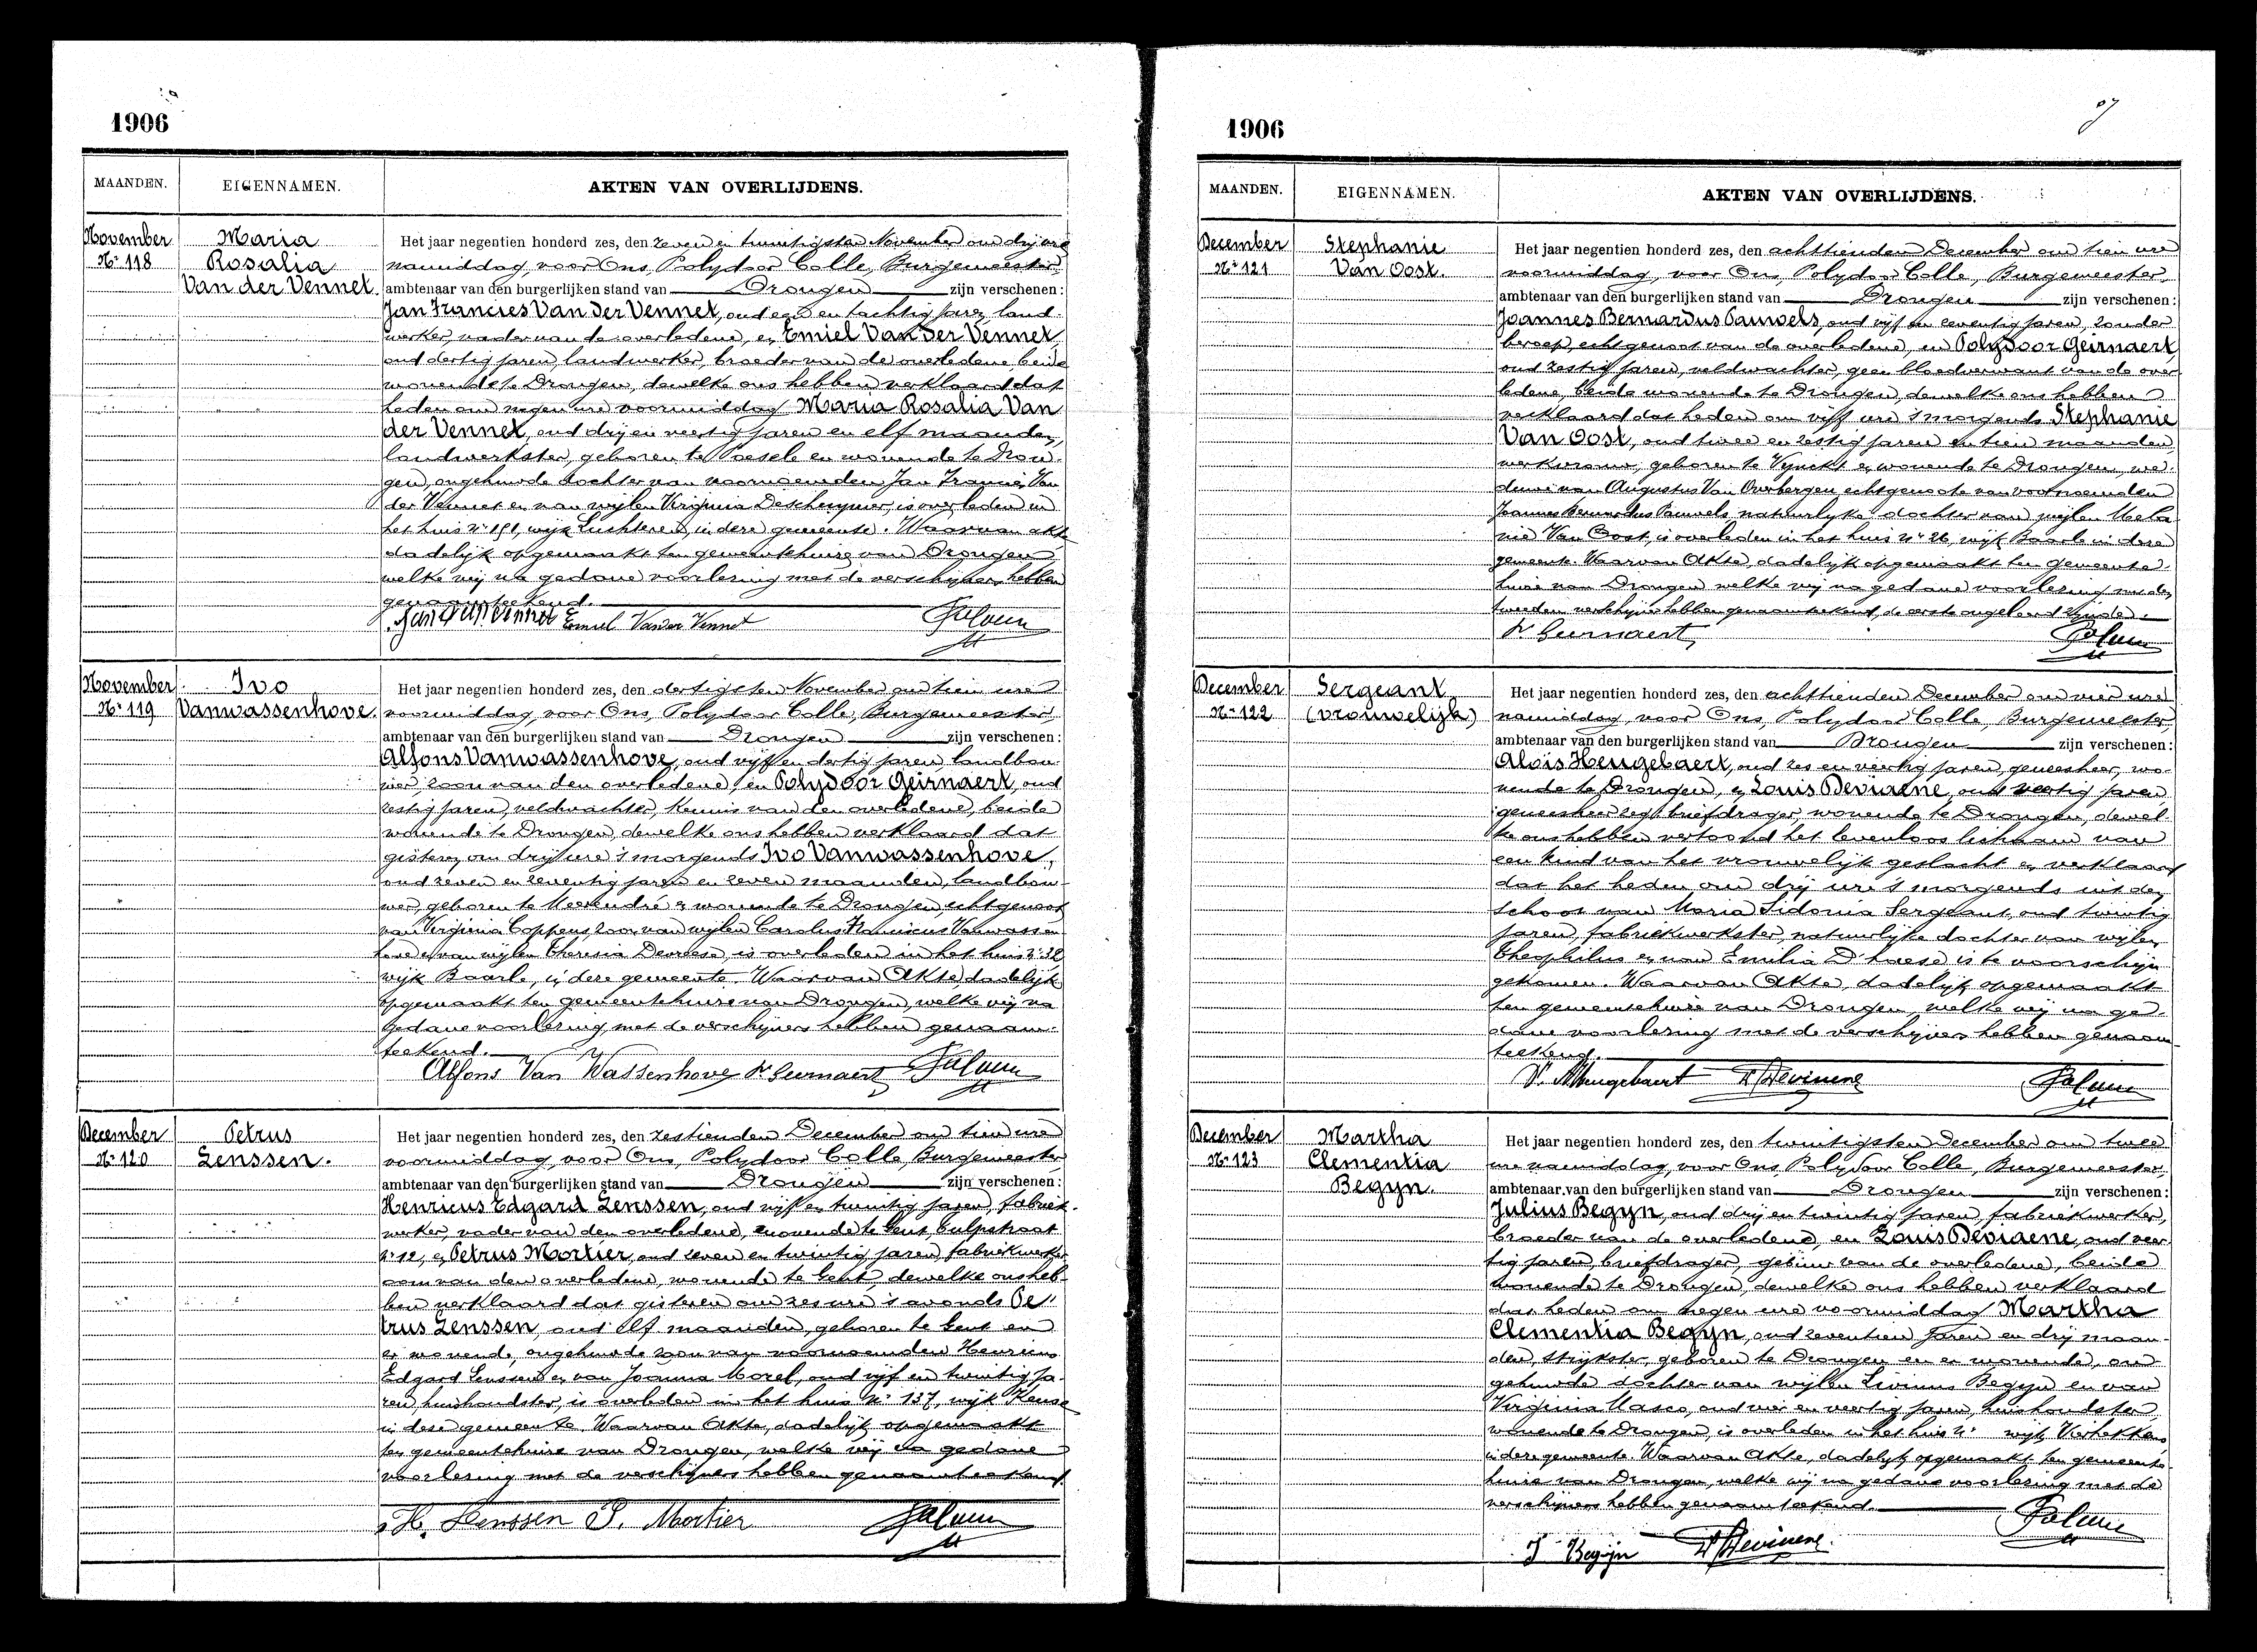 1906
MAANDEN.
EIGENNAMEN.
AKTEN VAN OVERLIJDENS.
November
Nr 118
Maria
Rosalia
Van der Vennet.
Het jaar negentien honderd zes, den zeven en twintigsten November om drij ure
namiddag, voor Ons, Polydoor Colle, Burgemeester,
ambtenaar van den burgerlijken stand van Drongen zijn verschenen:
Jan Francies Van der Vennet, oud een en tachtig jaren, land-
werker, vader van de overledene, en Emiel Van der Vennet,
oud dertig jaren, landwerker, broeder van de overledene, beide
wonende te Drongen, dewelke ons hebben verklaard dat
heden om negen ure voormiddag Maria Rosalia Van
der Vennet, oud drij en veertig jaren en elf maanden,
landwerkster, geboren te Poesele en wonende te Dron-
gen, ongehuwde dochter van voornoemden Jan Francies Van
der Vennet en van wijlen Virginia, is overleden in
het huis nr 151, wijk Luchteren, in deze gemeente. Waarvan akte
dadelijk opgemaakt ten gemeentehuize van Drongen
welke wij na gedane voorlezing met de verschijners hebben
genaamteekend.
Emiel Van der Vennet
November
Nr 119
Ivo
Vanwassenhove.
Het jaar negentien honderd zes, den dertigsten November om tien ure
voormiddag, voor Ons, Polydoor Colle, Burgemeester
ambtenaar van den burgerlijken stand van Drongen zijn verschenen:
Alfons Vanwassenhove, oud vijf en dertig jaren, landbou-
wer, zoon van den overledene, en Polydoor Geirnaert, oud
zestig jaren, veldwachter, kennis van den overledene, beide
wonende te Drongen, dewelke ons hebben verklaard dat
gisteren om drij ure 's morgends Ivo Vanwassenhove,
oud zeven en zeventig jaren en zeven maanden, landbou-
wer, geboren te Meerendré en wonende te Drongen, echtgenoot
van Virginia Coppens, zoon van wijlen Carolus Franciscus Vanwassen-
hove en van wijlen Theresia Devreese, is overleden in het huis nr 32
wijk Baarle, in deze gemeente. Waarvan Akte, dadelijk
opgemaakt ten gemeentehuize van Drongen, welke wij na
gedane voorlezing met de verschijners hebben genaam-
teekend.
Alfons Van Wassenhove P. Geirnaert
December
Nr 120
Petrus
Lenssen.
Het jaar negentien honderd zes, den zestienden December om tien ure
voormiddag, voor Ons, Polydoor Colle, Burgemeester
ambtenaar van den burgerlijken stand van Drongen zijn verschenen:
Henricus Edgard Lenssen, oud vijf en twintig jaren, fabriek-
werker, vader van den overledene, wonende te Gent,
nr 12, en Petrus Mortier, oud zeven en twintig jaren, fabriekwerker
oom van den overledene, wonende te Gent, dewelke ons heb-
ben verklaard dat gisteren om zes ure 's avonds Pe-
trus Lenssen, oud elf maanden, geboren te Gent en
er wonende, ongehuwde zoon van voornoemden Henricus
Edgard Lenssen en van Joanna Morel, oud vijf en twintig ja-
ren, huishoudster, is overleden in het huis Nr 137, wijk Keuze
in deze gemeente. Waarvan Akte, dadelijk opgemaakt
ten gemeentehuize van Drongen, welke wij na gedane
voorlezing met de verschijners hebben genaamteekend.
H. Lenssen P. Mortier
1906
MAANDEN.
EIGENNAMEN.
AKTEN VAN OVERLIJDENS.
December
Nr 121
Stephanie
Van Oost.
Het jaar negentien honderd zes, den achttienden December om tien ure
voormiddag, voor Ons, Polydoor Colle, Burgemeester,
ambtenaar van den burgerlijken stand van Drongen zijn verschenen:
Joannes Bernardus Pauwels, oud vijf en zeventig jaren, zonder
beroep, echtgenoot van de overledene, en Polydoor Geirnaert,
oud zestig jaren, veldwachter, geen bloedverwant van de over-
ledene, beide wonende te Drongen, dewelke ons hebben
verklaard dat heden om vijf ure 's morgends Stephanie
Van Oost, oud twee en zestig jaren en tien maanden,
werkvrouw, geboren te Vynckt en wonende te Drongen, we-
duwe van Augustus Van Overbergen echtgenoote van voornoemden
Joannes Bernardus Pauwels natuurlijke dochter van wijlen Mela-
nie Van Oost, is overleden in het huis nr 26, wijk Baarle in deze
gemeente. Waarvan Akte, dadelijk opgemaakt ten gemeente-
huize van Drongen welke wij na gedane voorlezing met den
tweeden verschijner hebben genaamteekend, de eerste ongeleerd zijnde.
P. Geirnaert
December
Nr 122
Sergeant
(vrouwelijk)
Het jaar negentien honderd zes, den achttienden December om vier ure
namiddag, voor Ons, Polydoor Colle, Burgemeester,
ambtenaar van den burgerlijken stand van Drongen zijn verschenen:
Aloïs Hengebaert, oud zes en veertig jaren, geneesheer, wo-
nende te Drongen, en Louis Deviaene, oud veertig jaren,
geneesheer zegt briefdrager, wonende te Drongen, dewel-
ke ons hebben vertoond het levenloos lichaam van
een kind van het vrouwelijk geslacht en verklaard
dat het heden om drij ure 's morgends uit den
schoot van Maria Sidonia Sergeant, oud twintig
jaren, fabriekwerkster, natuurlijke dochter van wijlen
Theophilus en van Emilia D'haese is te voorschijn
gekomen. Waarvan Akte, dadelijk opgemaakt
ten gemeentehuize van Drongen, welke wij na ge-
dane voorlezing met de verschijners hebben genaam-
teekend.
December
Nr 123
Martha
Clementia
Begyn.
Het jaar negentien honderd zes, den twintigsten December om twee
ure namiddag, voor Ons, Polydoor Colle, Burgemeester,
ambtenaar van den burgerlijken stand van Drongen zijn verschenen:
Julius Begyn, oud drij en twintig jaren, fabriekwerker,
broeder van de overledene, en Louis Deviaene, oud veer-
tig jaren, briefdrager, gebuur van de overledene, beide
wonende te Drongen, dewelke ons hebben verklaard
dat heden om negen ure voormiddag Martha
Clementia Begyn, oud zeventien jaren en drij maan-
den, strijkster, geboren te Drongen en er wonende, on-
gehuwde dochter van wijlen Livinus Begyn en van
Virginia Masco, oud vier en veertig jaren, huishoudster,
wonende te Drongen, is overleden in het huis nr wijk
in deze gemeente. Waarvan Akte, dadelijk opgemaakt ten gemeente-
huize van Drongen, welke wij na gedane voorlezing met de
verschijners hebben genaamteekend.
J Begijn